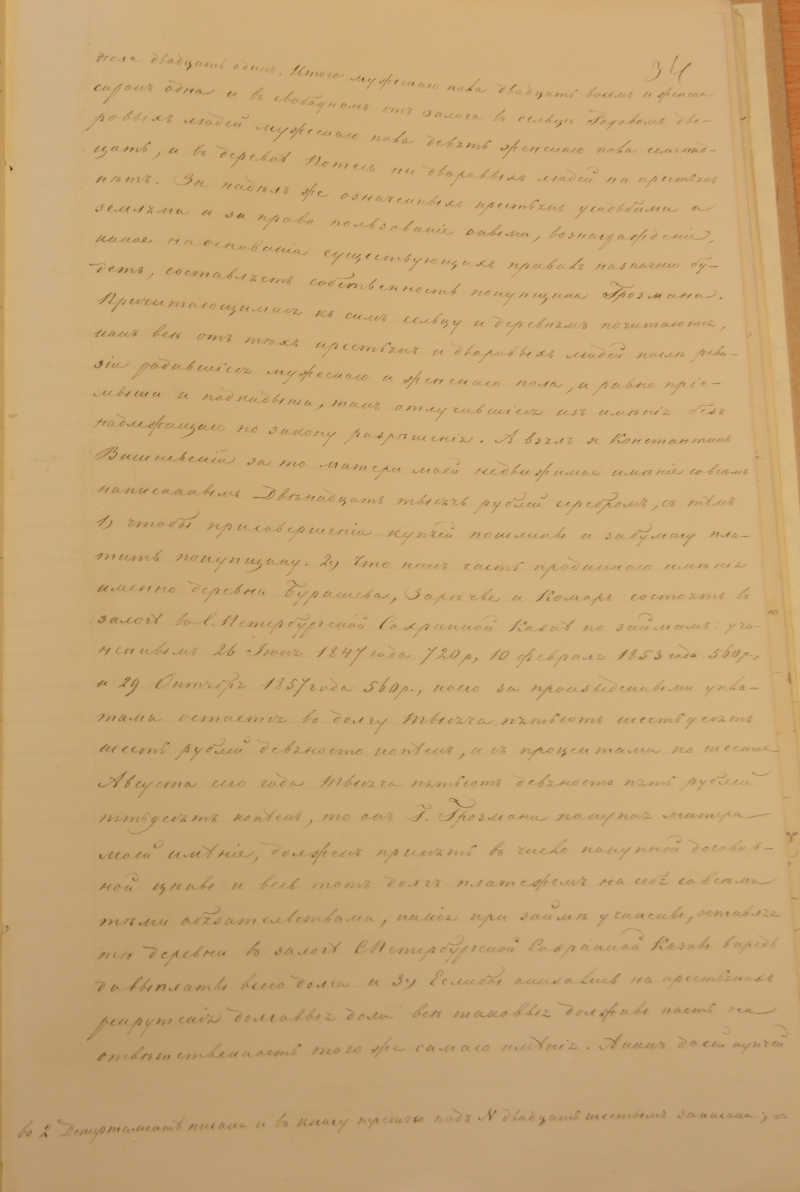 34
пола двадцать одинъ. Итого мужескаго пола двадцать восемь и женска-
одна и въ свободномъ отъ залога въ сельцѣ дво-
ровыхъ людей мужескаго пола девять женскаго пола семнад-
цать, и въ деревнѣ дворовыхъ людей ни крестьянъ
нѣтъ. За надѣлъ же означенныхъ крестьянъ усадьбами и
землями и за право пользованія оными, вознагражденіе,
какое на основаніи существующихъ правилъ назначено бу-
детъ, составляетъ собственность покупщика Грозмана.
Причитающимися къ симъ сельцу и деревнямъ почитаются,
какъ всѣ отъ тѣхъ крестьянъ и дворовыхъ людей послѣ реви-
зіи родившіеся мужескаго и женскаго пола, и равно пріе-
мыши и подкидыши, такъ отлучившіеся изъ имѣнія безъ
надлежащаго по закону разрѣшенія. А взялъ я Константинъ
Вишневскій за то матери моей недвижимое имѣніе со всемъ
написаннымъ Двѣнадцать тысячъ рублей серебромъ, съ тѣмъ
1) чтобы при совершеніи купчей пошлины и за бумагу пла-
тить покупщику. 2) Что какъ часть проданнаго имѣнія
именно деревни Бурашева, Зарѣчье и Комаръ состоятъ въ
залогѣ въ С.Петербургской Сохранной Казнѣ по займамъ: учи-
неннымъ 26 Іюня 1847 года 720 р, 10 февраля 1853 года 560 р,
и 29 Октября 1857 года 560 р., коего за произведенными упла-
тами остается въ долгу тысяча пятьсотъ шестьдесятъ
шесть рублей девяносто копѣекъ, и съ процентами по шестое
Августа сего года тысяча пятьсотъ девяносто пять рублей
пятьдесятъ копѣекъ, то онъ Г. Грозманъ покупая матери
моей имѣніе, долженъ принять въ число покупной договор-
ной цѣны и весь тотъ долгъ платежемъ на себя со всеми
тѣми обязательствами, какія при займѣ учинены, оставляя
тѣ деревни въ залогѣ С.Петербургской Сохранной Казны впредь
до выплаты всего долга и 3) Еслибы оказались на крестьянахъ
рекрутскія долговыя доли всѣ таковыя должны пасть на
отвѣтственность того же самаго имѣнія. А какъ до сей купчей
во 2 Департаментѣ писана и въ книгу подъ N двадцать шестымъ записана;